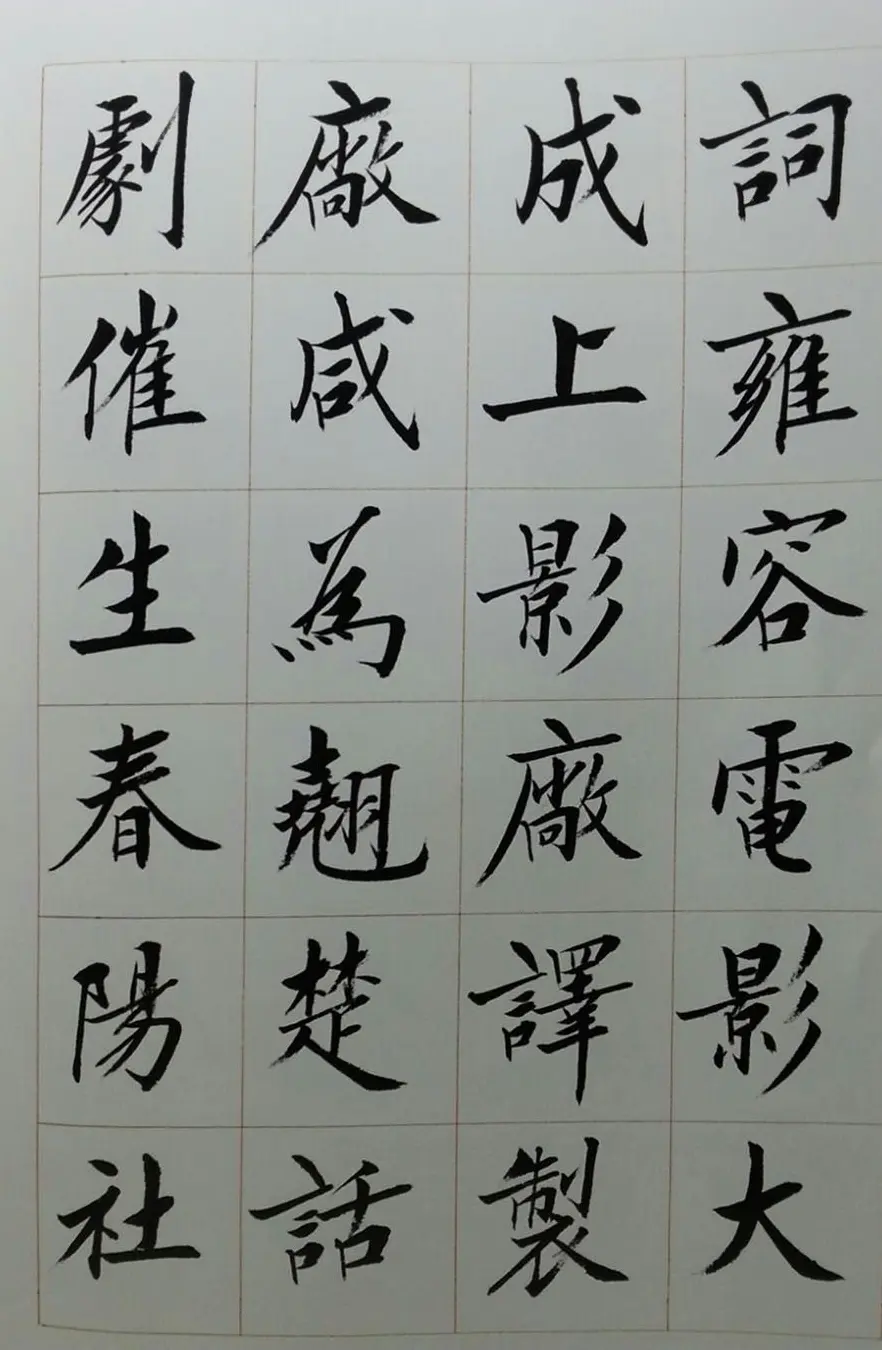 詞雍容電影大
成上影廠譯製
廠咸為翹楚話
劇催生春陽社